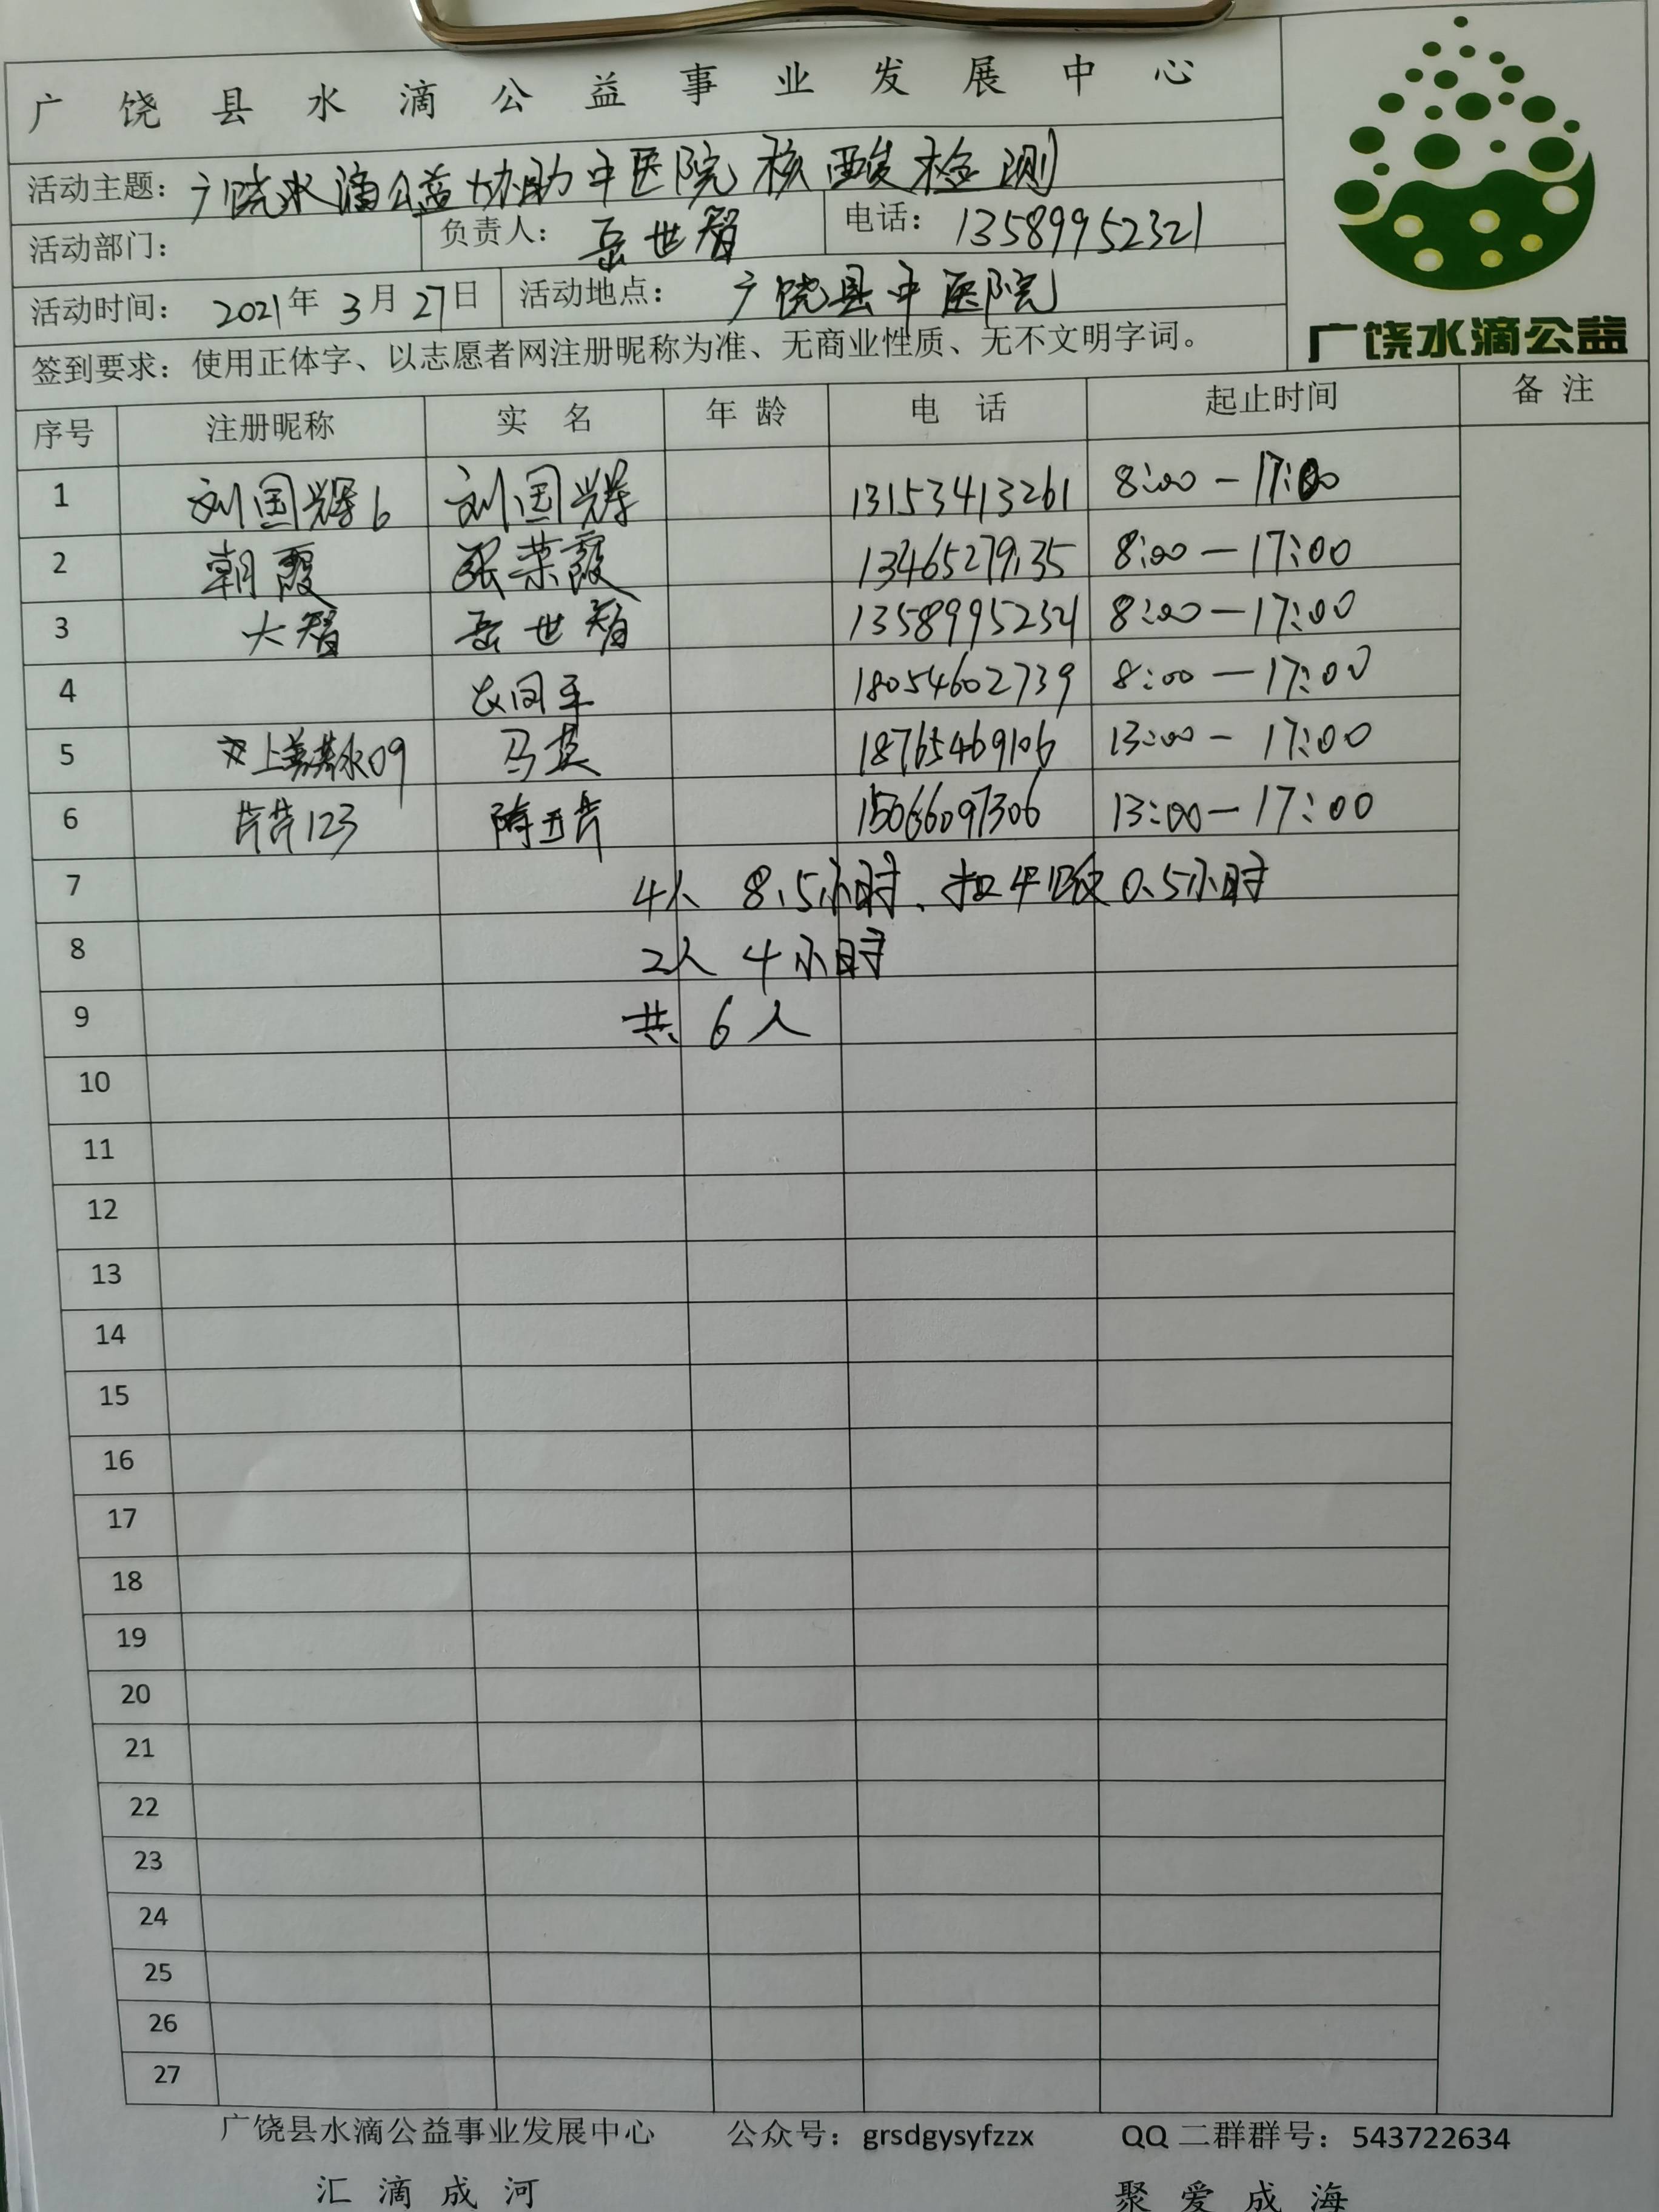 广饶县水滴公益事业发展中心
活动主题：广饶水滴公益协助中医院核酸检测
活动部门： 负责人：岳世智 电话：13589952321
活动时间：2021年3月27日 活动地点：广饶县中医院
广饶水滴公益
签到要求：使用正体字、以志愿者网注册昵称为准、无商业性质、无不文明字词。
序号 注册昵称 实名 年龄 电话 起止时间 备注
1 刘国辉6 刘国辉 13153413261 8:00-17:00
2 朝霞 张荣霞 13465279135 8:00-17:00
3 大智 岳世智 13589952321 8:00-17:00
4 18054602739 8:00-17:00
5 马英 18765469106 13:00-17:00
6 芹芹123 15066097306 13:00-17:00
7 4人 8.5小时、扣午饭0.5小时
8 2人 4小时
9 共6人
10
11
12
13
14
15
16
17
18
19
20
21
22
23
24
25
26
27
广饶县水滴公益事业发展中心 公众号：grsdgysyfzzx QQ二群群号：543722634
汇滴成河 聚爱成海